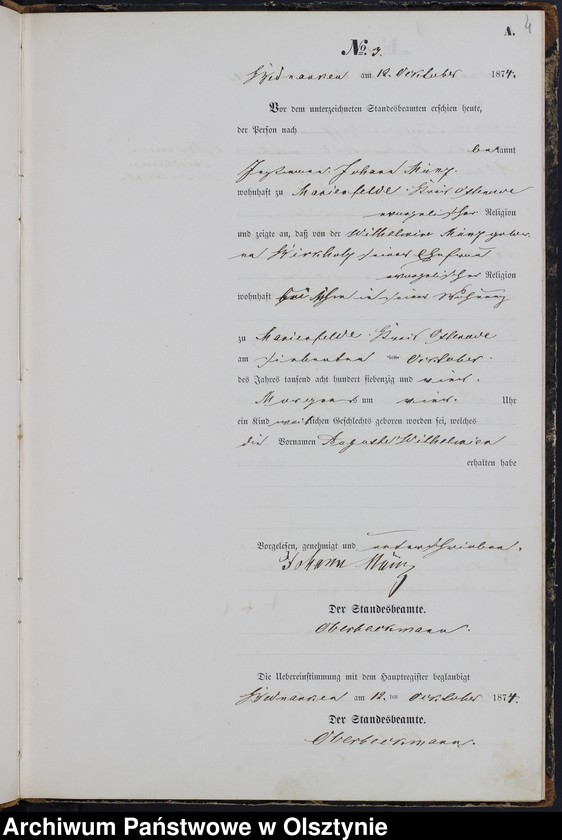 4
A.
No. 3.
am 12. October 1874.
Vor dem unterzeichneten Standesbeamten erschien heute,
der Person nach
bekannt
Johann Münz.
wohnhaft zu Marienfelde Kreis Osterode
evangelischer Religion
und zeigte an, daß von der Wilhelmine Münz gebor
ne seiner Ehefrau
evangelischer Religion
wohnhaft bei ihm in seiner Wohnung
zu Marienfelde Kreis Osterode
am siebenten ten October
des Jahres tausend acht hundert siebenzig und vier.
Morgens um vier. Uhr
ein Kind weiblichen Geschlechts geboren worden sei, welches
die Vornamen Auguste Wilhelmine
erhalten habe
Vorgelesen, genehmigt und unterschrieben.
Johann Münz
Der Standesbeamte.
Oberbeckmann.
Die Uebereinstimmung mit dem Hauptregister beglaubigt
am 12. ten October 1874.
Der Standesbeamte.
Oberbeckmann.
Archiwum Państwowe w Olsztynie